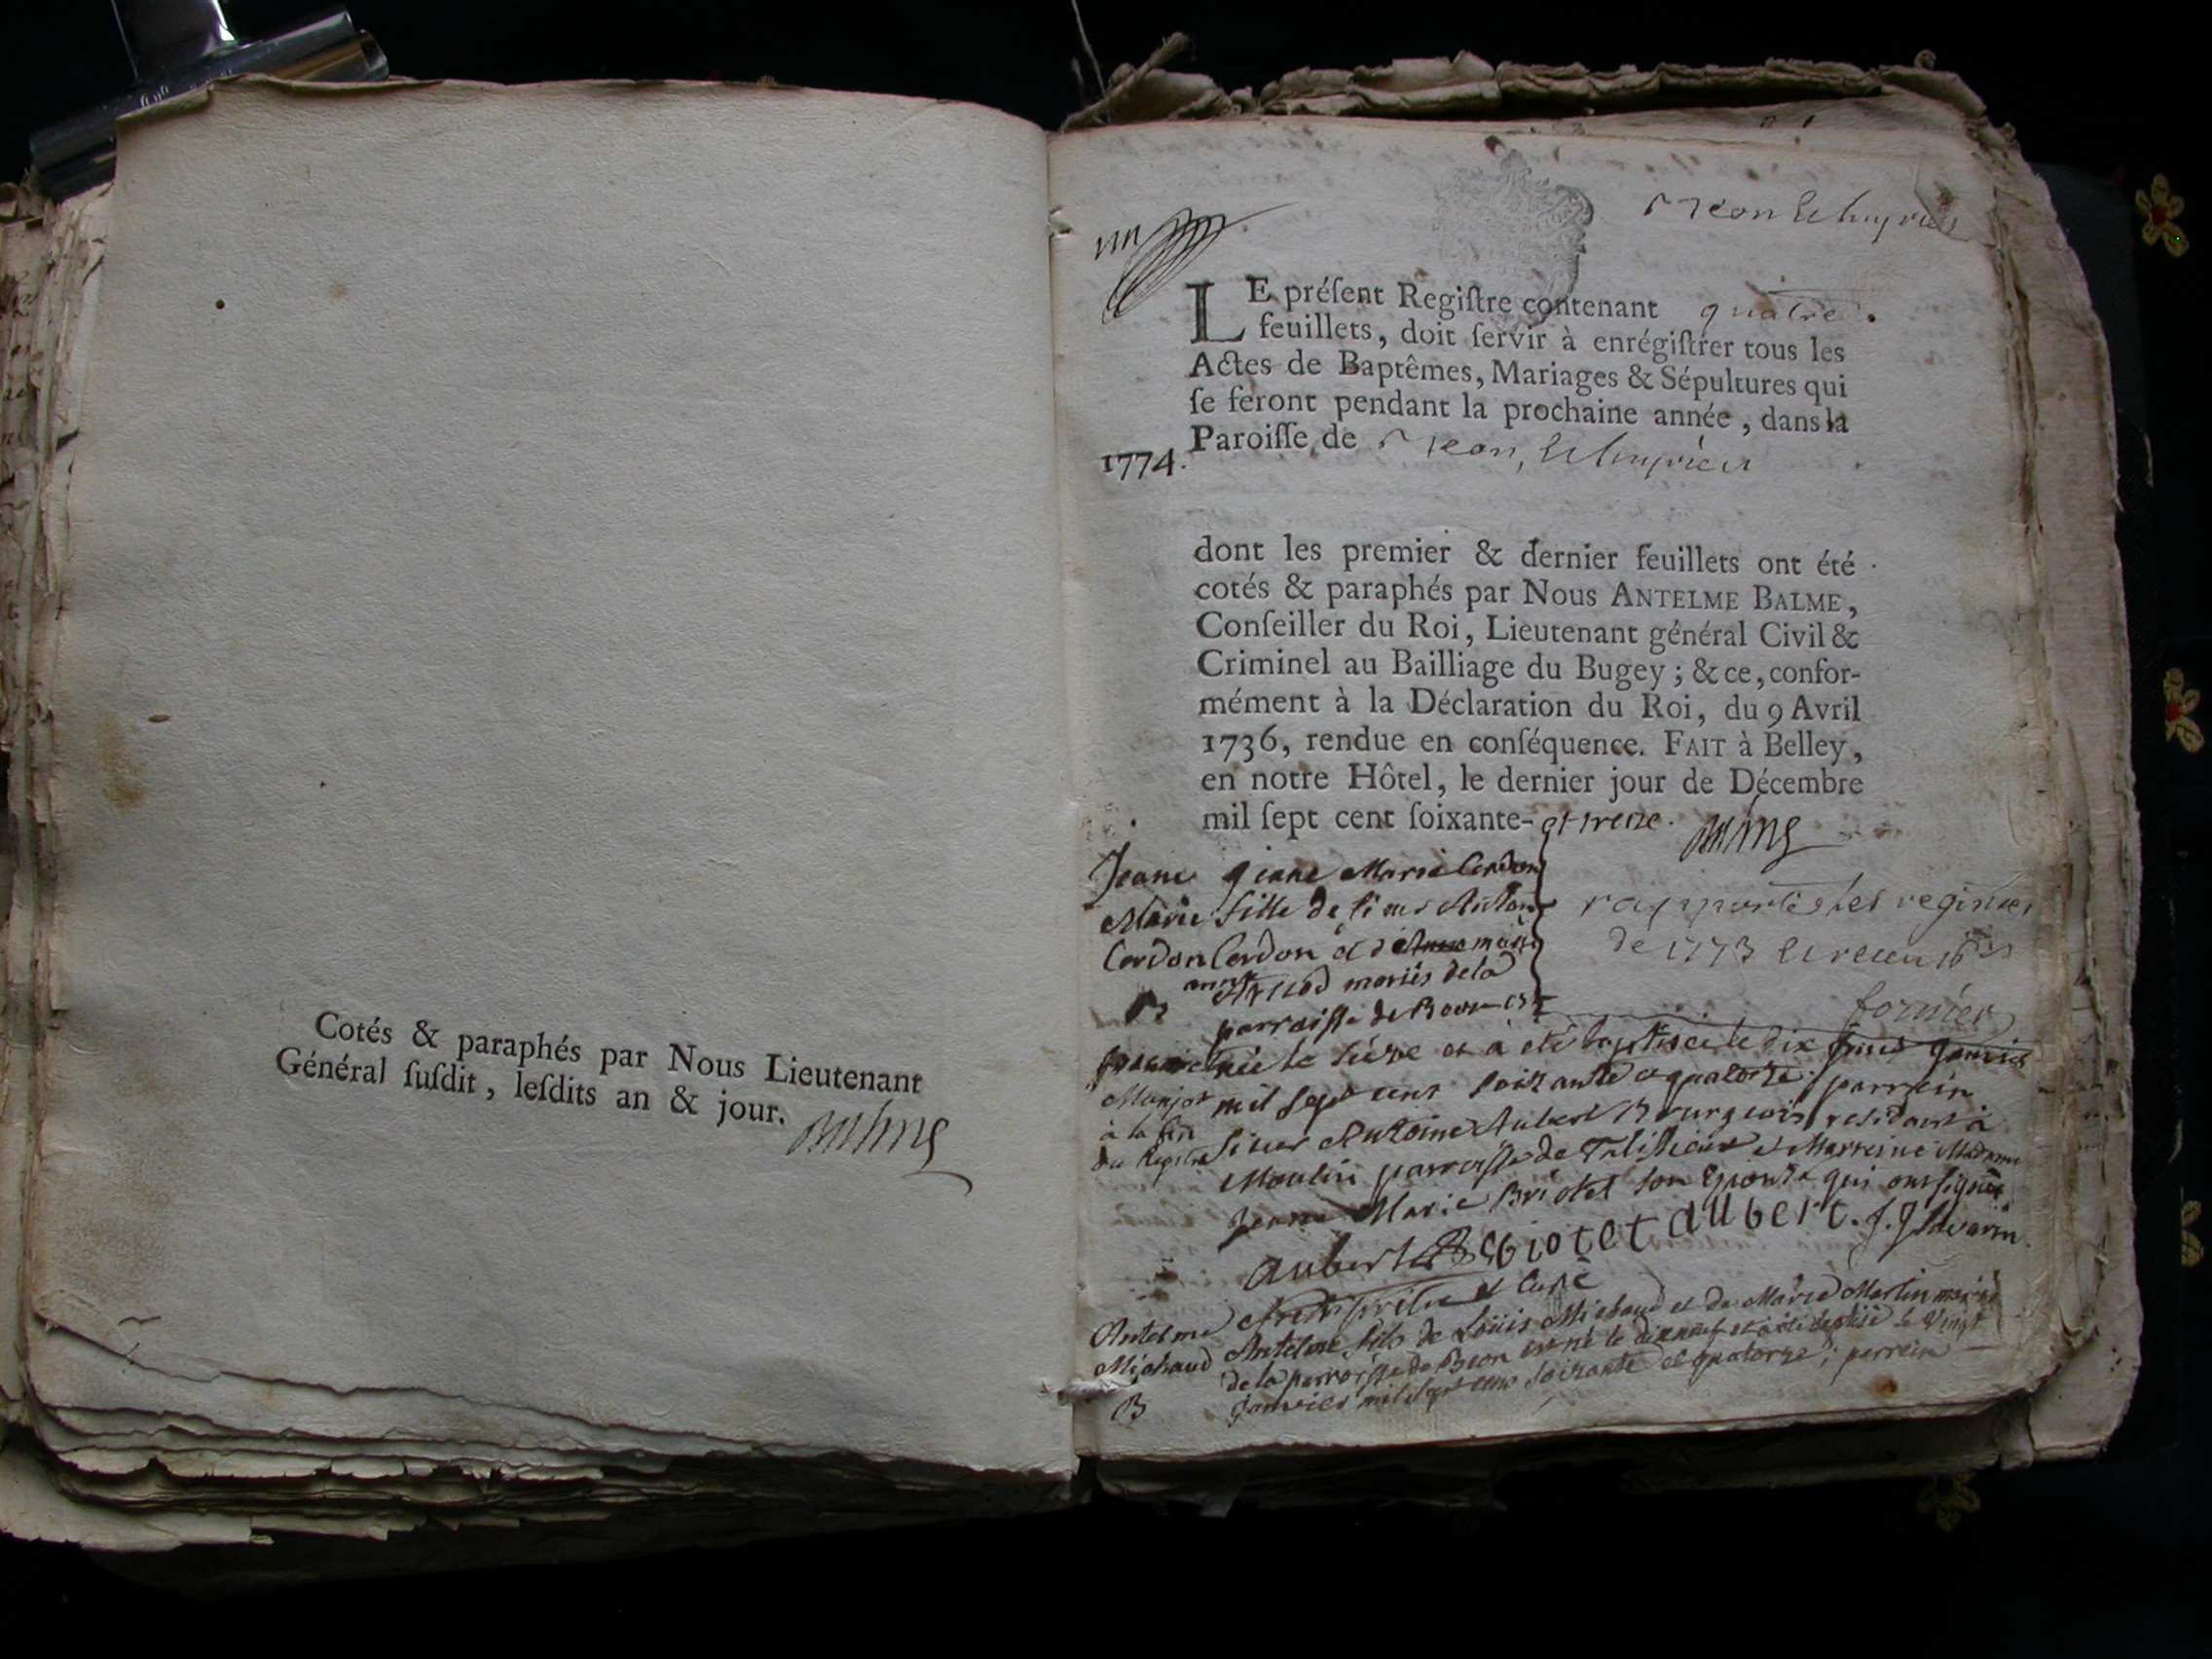 Cotés & paraphés par Nous Lieutenant
Général ſuſdit, leſdits an & jour.
un
LE préſent Regiſtre contenant quatre
feuillets, doit ſervir à enrégiſtrer tous les
Actes de Baptêmes, Mariages & Sépultures qui
ſe feront pendant la prochaine année, dans la
Paroiſſe de
1774.
dont les premier & dernier feuillets ont été
cotés & paraphés par Nous ANTELME BALME,
Conſeiller du Roi, Lieutenant général Civil &
Criminel au Bailliage du Bugey; & ce, confor-
mément à la Déclaration du Roi, du 9 Avril
1736, rendue en conſéquence. FAIT à Belley,
en notre Hôtel, le dernier jour de Décembre
mil ſept cent ſoixante- et treize.
Jeane
Marie
Cerdon
B
Marie Cerdon
fille de sieur
Cerdon et
mariés de la
parroisse de
rapporté les registres
de 1773
fornier
née le sèze et a été baptisée le dix janvier
mil sept cent soixante et quatorze: parrain
sieur Antoine Aubert Bourgeois residant à
parroisse de Talissieu et Marreine Madame
Jeanne Marie Briotet son Epouse qui ont signés
à la fin
du Registre
aubert Briotet aubert. J. J. Savarin
prêtre et Curé
Antelme
Michaud
B
Antelme fils de Loüis Michaud et de Marie Martin mariés
de la parroisse de Beon est né le dixneuf et a été baptisé le Vingt
Janvier mil sept cent soixante et quatorze; parrein